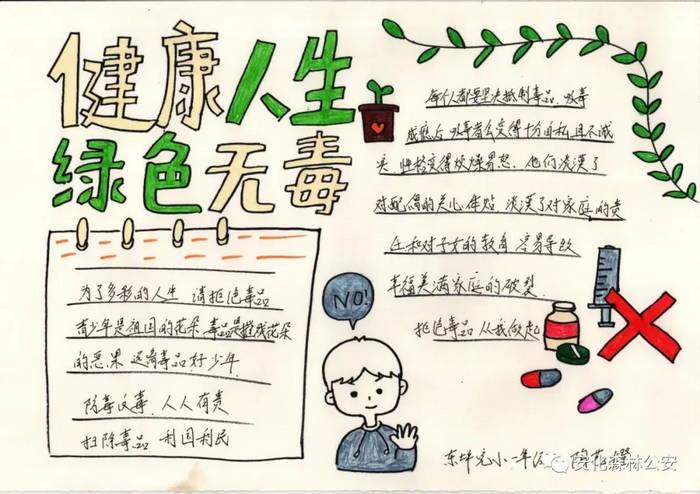 健康人生
绿色无毒
每个人都要坚决抵制毒品、吸毒
成瘾后吸毒者会变得十分自私且不诚
实,性格变得烦燥易怒、他们淡漠了
对配偶的关心体贴 淡漠了对家庭的责
任和对子女的教育 容易导致
幸福美满家庭的破裂
拒绝毒品 从我做起
为了多彩的人生 请拒绝毒品
青少年是祖国的花朵 毒品是摧残花朵
的恶果 远离毒品好少年
防毒反毒、人人有责
扫除毒品 利国利民
NO!
东坪完小二年级
安化森林公安